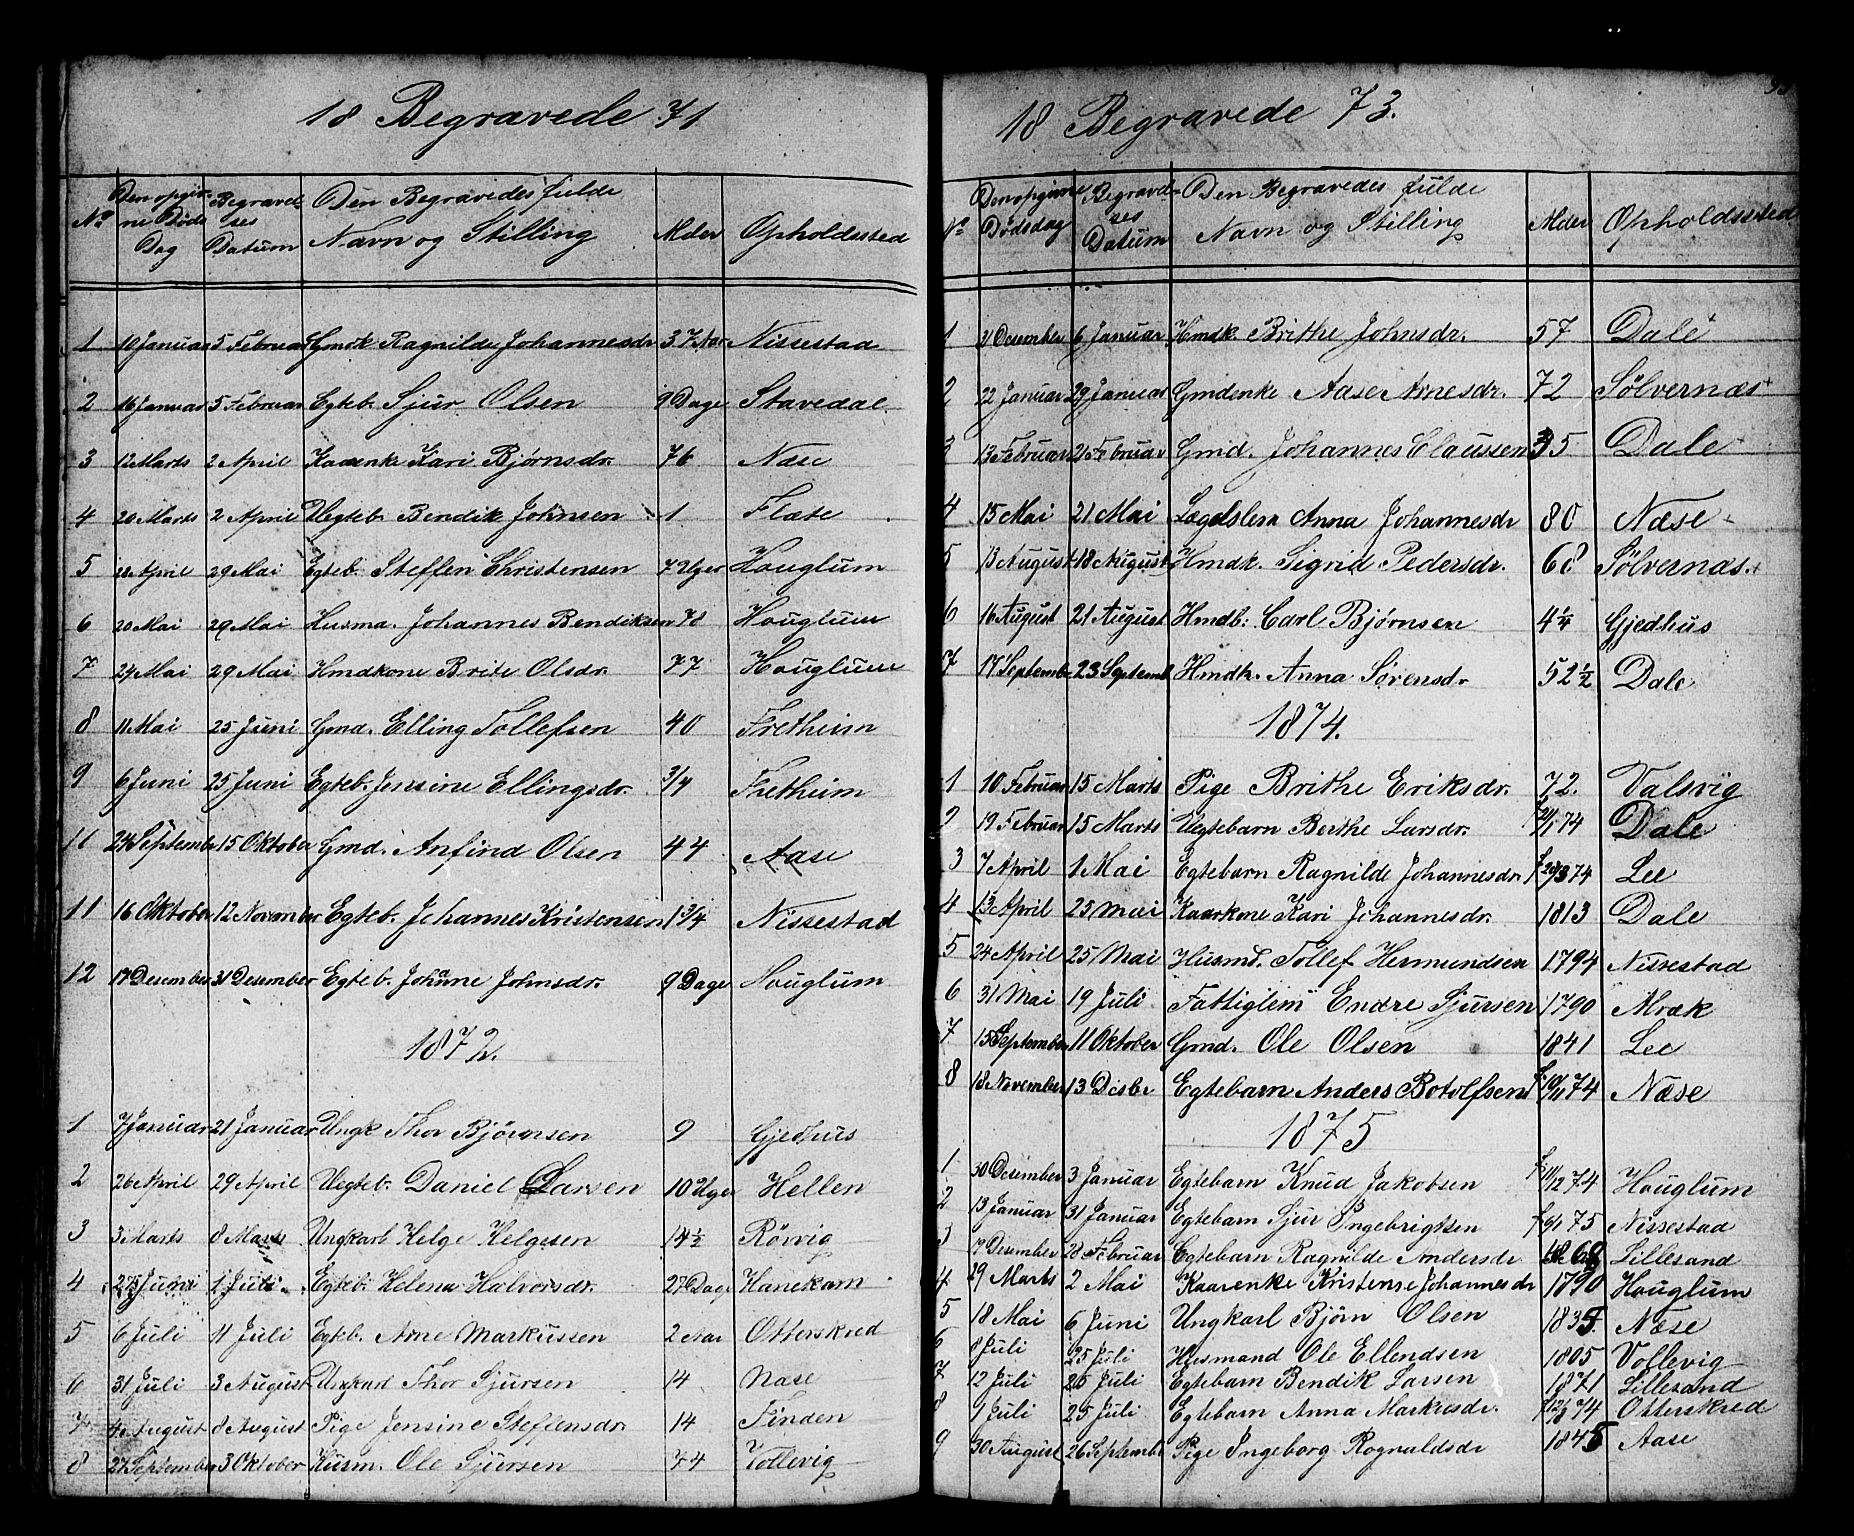 18 Begravede 71
No | Den opgivne Døds Dag | Begravelses Datum | Den Begravedes fulde Navn og Stilling | Alder | Opholdssted
1 | 10 Januar | 5 Februar | Gmdk Ragnilde Johannesdr | 37 Aar | Nissestad
2 | 16 Januar | 5 Februar | Egteb. Sjur Olsen | 9 Dage | Stavedal
3 | 12 Marts | 2 April | Kaarenk Kari Bjørnsdr. | 76 | Næse
4 | 20 Marts | 2 April | Uegteb. Bendik Johnsen | 1 | Flæte
5 | 28 April | 29 Mai | Egteb. Steffen Christensen | 7 Uger | Houglum
6 | 20 Mai | 29 Mai | Husma. Johannes Bendiksen | 78 | Houglum
7 | 24 Mai | 29 Mai | Hmdkone Brite Olsdr. | 77 | Houglum
8 | 11 Mai | 25 Juni | Gmd. Elling Tollefsen | 40 | Fretheim
9 | 6 Juni | 25 Juni | Egteb. Jensine Ellingsdr. | 3/4 | Fretheim
10 | 24 September | 15 Oktober | Gmd. Anfind Olsen | 44 | Aase
11 | 16 Oktober | 12 November | Egteb. Johannes Kristensen | 1 3/4 | Nissestad
12 | 17 Desember | 31 Desember | Egteb. Johanne Johnsdr. | 9 Dage | Houglum
1872.
1 | 7 Januar | 21 Januar | Ungk Thor Bjørnsen | 9 | Gjedhus
2 | 26 April | 29 April | Uegteb. Daniel Larsen | 10 Uger | Hellen
3 | 3 Marts | 8 Marts | Ungkarl Helge Helgesen | 14 1/2 | Rørvig
4 | 27 Juni | 1 Juli | Egteb. Helena Halvorsdr. | 27 Dage | Hanekam
5 | 6 Juli | 11 Juli | Egteb. Arne Markussen | 2 Aar | Otterskred
6 | 31 Juli | 3 August | Ungkarl Thor Sjursen | 14 | Næse
7 | 4 August | 8 August | Pige Jensine Steffensdr. | 14 | Finden
8 | 27 September | 3 Oktober | Husm. Ole Sjursen | 74 | Vollevig
18 Begravede 73.
No | Den opgivne Dødsdag | Begravelses Datum | Den Begravedes fulde Navn og Stilling | Alder | Opholdssted
1 | 31 Desember | 6 Januar | Hmdk. Brithe Johnsdr. | 57 | Dale
2 | 22 Januar | 29 Januar | Gmdenke Aase Arnesdr. | 72 | Sølvernæs
3 | 13 Februar | 21 Februar | Gmd. Johannes Claussen | 35 | Dale
4 | 15 Mai | 21 Mai | Lægdslem Anna Johannesdr | 80 | Næse
5 | 13 August | 18 August | Hmdk. Sigrid Pedersdr. | 68 | Sølvernæs
6 | 16 August | 21 August | Hmdb: Carl Bjørnsen | 4 1/4 | Gjedhus
7 | 17 September | 23 Septemb | Hmdk. Anna Sørensdr | 52 1/2 | Dale
1874.
1 | 10 Februar | 15 Marts | Pige Brithe Eriksdr. | 72. | Valsvig
2 | 19 Februar | 15 Marts | Uegtebarn Berthe Larsdr. | f 21/1 74 | Dale
3 | 7 April | 1 Mai | Egtebarn Ragnilde Johannesdr | f 20/3 74 | Lee
4 | 13 April | 25 Mai | Kaarkone Kari Johannesdr. | 1813 | Dale
5 | 24 April | 25 Mai | Husmd. Tollef Hermundsen | 1794 | Nissestad
6 | 31 Mai | 19 Juli | Fattiglem Endre Sjursen | 1790 | Alræk
7 | 15 September | 11 Oktober | Gmd. Ole Olsen | 1841 | Lee
8 | 18 November | 13 Desbr | Egtebarn Anders Botolfsen | f. 10/11 74 | Næse
1875
1 | 30 Desember | 3 Januar | Egtebarn Knud Jakobsen | f. 11/12 74 | Houglum
2 | 13 Januar | 31 Januar | Egtebarn Sjur Ingebrigtsen | f 6/1 75 | Nissestad
3 | 7 Desember | 28 Februar | Egtebarn Ragnilde Andersdr | 1868 | Lillesand
4 | 29 Marts | 2 Mai | Kaarenke Kristense Johannesdr | 1790 | Houglum
5 | 18 Mai | 6 Juni | Ungkarl Bjørn Olsen | 1835 | Næse
6 | 8 Juli | 25 Juli | Husmand Ole Ellendsen | 1805 | Vollevig
7 | 12 Juli | 25 Juli | Egtebarn Bendik Larsen | 1871 | Lillesand
8 | 1 Juli | 25 Juli | Egtebarn Anna Markusdr. | f 12/3 74 | Otterskred
9 | 30 August | 26 Septembr | Pige Ingeborg Rognaldsdr | 1845 | Aase